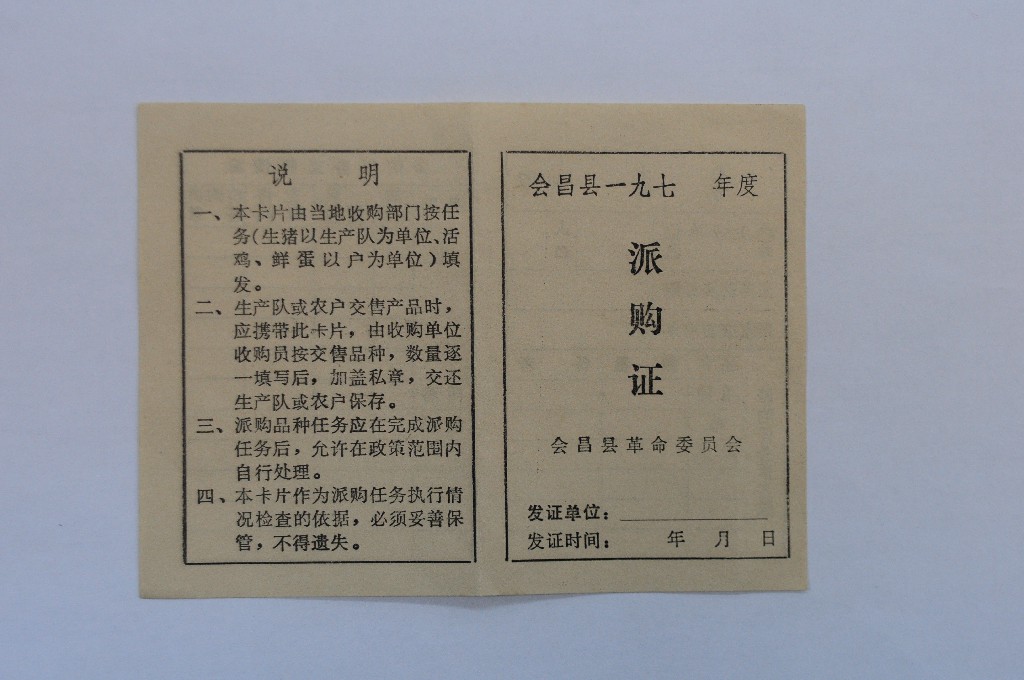 说 明
一、本卡片由当地收购部门按任
务(生猪以生产队为单位、活
鸡、鲜蛋以户为单位)填
发。
二、生产队或农户交售产品时，
应携带此卡片，由收购单位
收购员按交售品种，数量逐
一填写后，加盖私章，交还
生产队或农户保存。
三、派购品种任务应在完成派购
任务后，允许在政策范围内
自行处理。
四、本卡片作为派购任务执行情
况检查的依据，必须妥善保
管，不得遗失。
会昌县一九七 年度
派
购
证
会昌县革命委员会
发证单位：
发证时间： 年 月 日